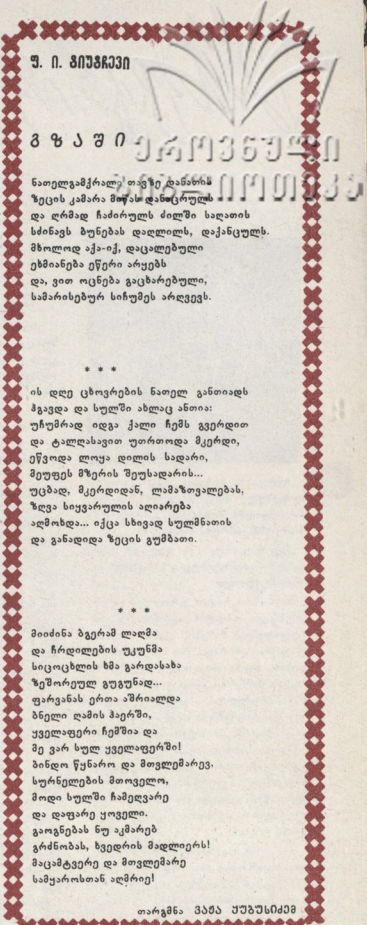 ფ. ი. ტიუტჩევი
გზაში
ეროვნული
ბიბლიოთეკა
ნათელგამქრალ თავზე
ზეცის კამარა მიწას დანაცრულს
და ღრმად ჩაძირულს ძილში საღათის
სძინავს ბუნებას დაღლილს, დაქანცულს.
მხოლოდ აქა-იქ, დაცალებული
ეხმიანება ეწერი არყებს
და, ვით ოცნება გაცხარებული,
სამარისებურ სიჩუმეს არღვევს.
* * *
ის დღე ცხოვრების ნათელ განთიადს
ჰგავდა და სულში ახლაც ანთია:
უჩუმრად იდგა ქალი ჩემს გვერდით
და ტალღასავით უთრთოდა მკერდი,
ეწვოდა ლოყა დილის სადარი,
მეუფეს მზერის შეუსადარის...
უცბად, მკერდიდან, ლამაზთვალებას,
ზღვა სიყვარულის აღიარება
აღმოხდა... იქცა სხივად სულმნათის
და განადიდა ზეცის გუმბათი.
* * *
მიიძინა ბგერამ ლაღმა
და ჩრდილების უკუნმა
სიცოცხლის ხმა გარდასახა
ზეშორეულ გუგუნად...
ფარვანას ერთა აშრიალდა
ბნელი ღამის ჰაერში,
ყველაფერი ჩემშია და
მე ვარ სულ ყველაფერში!
ბინდო წყნარო და მთვლემარევ,
სურნელების მთოველო,
მოდი სულში ჩამეღვარე
და დაფარე ყოველი.
გაოგნებას ნუ აკმარებ
გრძნობას, ხვედრის მადლიერს!
მაცამტვერე და მთვლემარე
სამყაროსთან აღმრიე!
თარგმნა ვაჟა ჯუბუსიძემ